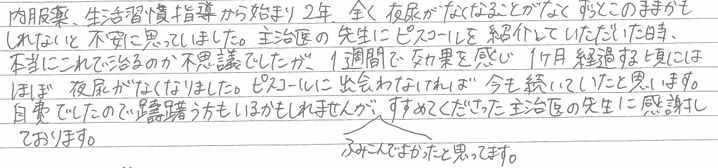 内服薬、生活習慣指導から始まり2年、全く夜尿がなくなることがなくずっとこのままかも
しれないと不安に思っていました。主治医の先生にピスコールを紹介していただいた時、
本当にこれで治るのか不思議でしたが、1週間で効果を感じ1ヶ月経過する頃には
ほぼ夜尿がなくなりました。ピスコールに出会わなければ今も続いていたと思います。
自費でしたので躊躇う方もいるかもしれませんが、すすめてくださった主治医の先生に感謝し
ております。
ふみこんでよかったと思ってます。